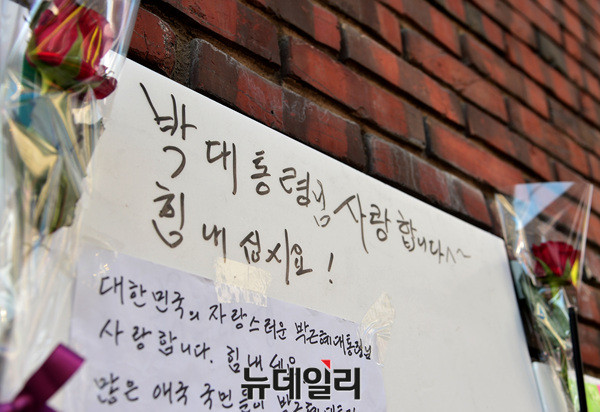 박 대통령님 사랑합니다^~
힘 내 십시요!
대한민국의 자랑스러운 박근혜 대통령님
사랑합니다. 힘 내세요
많은 애국 국민들이 박근혜
뉴데일리